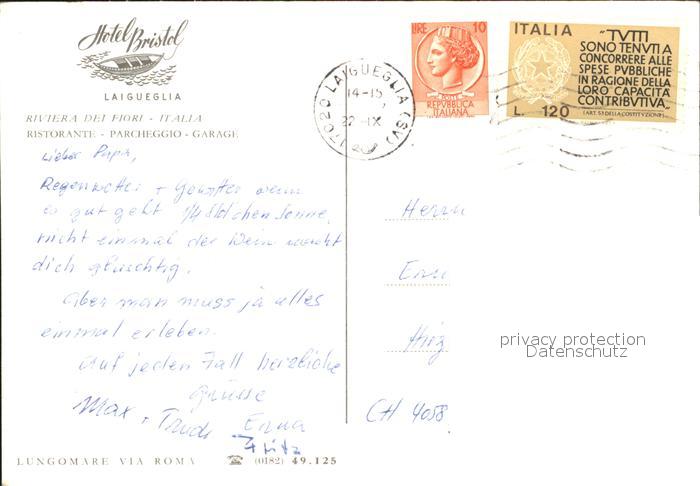 Hotel Bristol
LAIGUEGLIA
RIVIERA DEI FIORI - ITALIA
RISTORANTE - PARCHEGGIO - GARAGE
Lieber Papa,
Regenwetter + Gewitter wenn
es gut geht 1/4 Stdchen Sonne,
nicht einmal der Wein macht
dich gluschtig.
Aber man muss ja alles
einmal erleben.
Auf jeden Fall herzliche
Grüsse
Max + Trudi Erna
Fritz
LUNGOMARE VIA ROMA ☎ (0182) 49.125
17020 LAIGUEGLIA (SV)
14-15
22-IX
LIRE 10
POSTE
REPVBBLICA
ITALIANA
ITALIA
"TVTTI
SONO TENVTI A
CONCORRERE ALLE
SPESE PVBBLICHE
IN RAGIONE DELLA
LORO CAPACITÀ
CONTRIBVTIVA."
L. 120 (ART. 53 DELLA COSTITVZIONE)
Herrn
CH 4058
privacy protection
Datenschutz